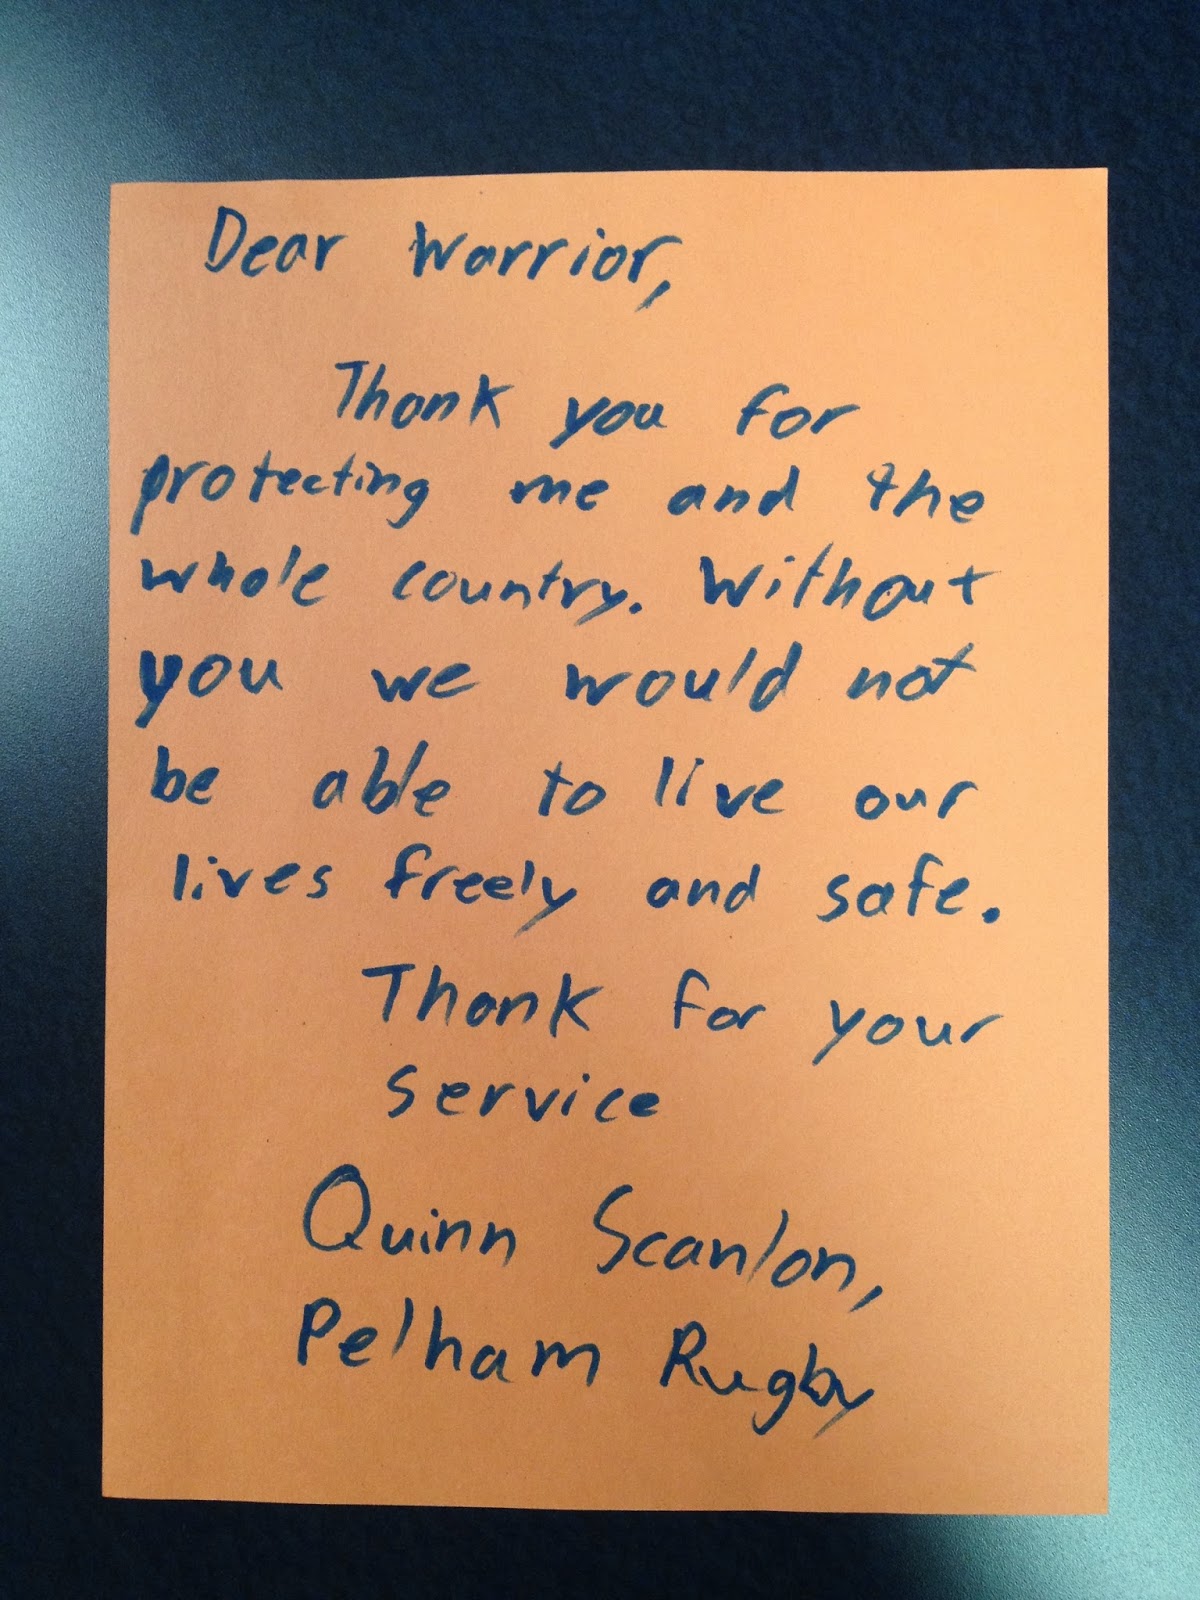 Dear Warrior,
Thank you for
protecting me and the
whole country. Without
you we would not
be able to live our
lives freely and safe.
Thank for your
service
Quinn Scanlon,
Pelham Rugby